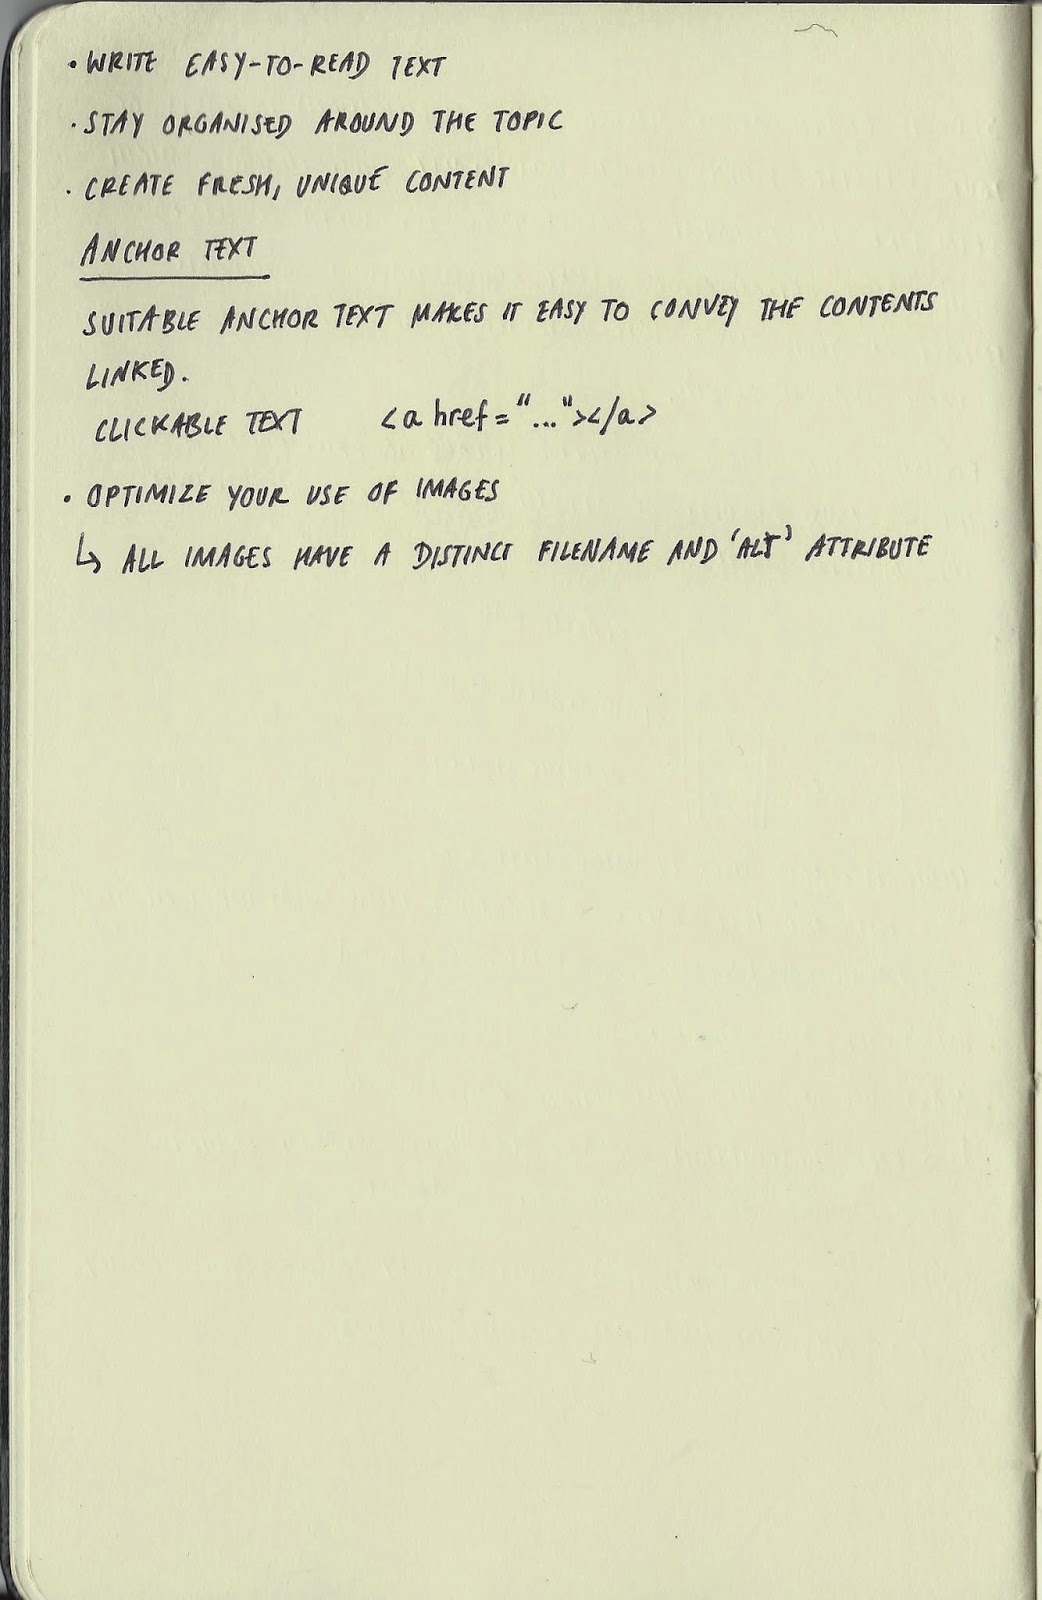 • WRITE EASY-TO-READ TEXT
• STAY ORGANISED AROUND THE TOPIC
• CREATE FRESH, UNIQUE CONTENT
ANCHOR TEXT
SUITABLE ANCHOR TEXT MAKES IT EASY TO CONVEY THE CONTENTS
LINKED.
CLICKABLE TEXT <a href="..."></a>
• OPTIMIZE YOUR USE OF IMAGES
↳ ALL IMAGES HAVE A DISTINCT FILENAME AND 'ALT' ATTRIBUTE